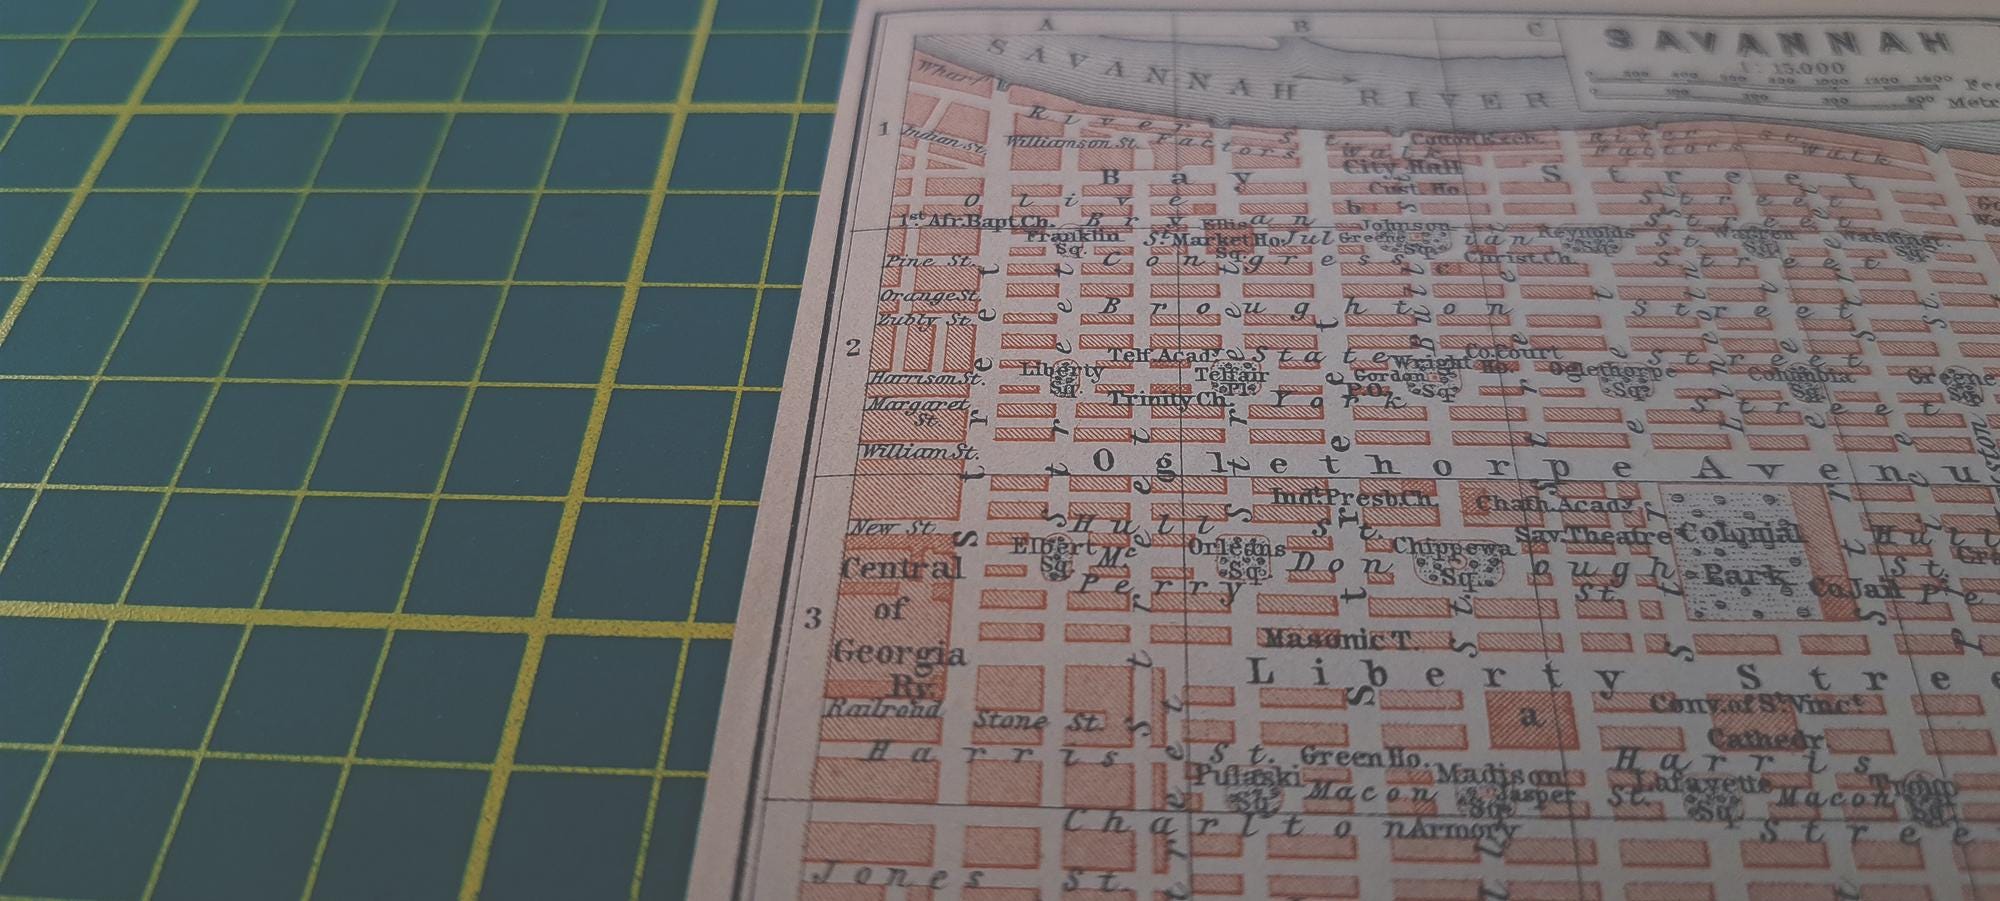 A B C
SAVANNAH
1:15.000
SAVANNAH RIVER
Wharf
1
River St.
Indian St.
Williamson St.
Factors Walk
Cotton Exch.
River St.
Factors Walk
City Hall
Bay Street
Cust. Ho.
Olive St.
1st Afr. Bapt. Ch.
Bryan Street
Ellis
Johnson
Franklin Sq.
St.
Market Ho.
Sq.
Julian St.
Greene Sq.
Reynolds Sq.
Warren Sq.
Washingt. Sq.
Pine St.
Congress Street
Christ Ch.
Orange St.
Broughton Street
Zubly St.
2
Telf. Acady
State Street
Wright
Co. Court Ho.
Liberty Sq.
Telfair Pl.
Gordon
Sq.
P.O.
Oglethorpe Sq.
Columbia Sq.
Greene Sq.
Harrison St.
Trinity Ch.
York Street
Margaret St.
William St.
Oglethorpe Avenu
Ind. Presb. Ch.
Chath. Acady
New St.
Hull St.
Sav. Theatre
Colonial Park
Hull St.
Elbert Sq.
Orleans Sq.
Chippewa Sq.
Mc Donough St.
Central of Georgia Ry.
Perry St.
Co. Jail
Pe
3
Masonic T.
Liberty Stre
Railroad
Stone St.
a
Conv. of St. Vinct
Cathedr.
Harris St.
Green Ho.
Harris
Pulaski Sq.
Macon St.
Madison Sq.
Jasper
Lafayette Sq.
Macon
Troup Sq.
Charlton Stree
Armory
Jones St.